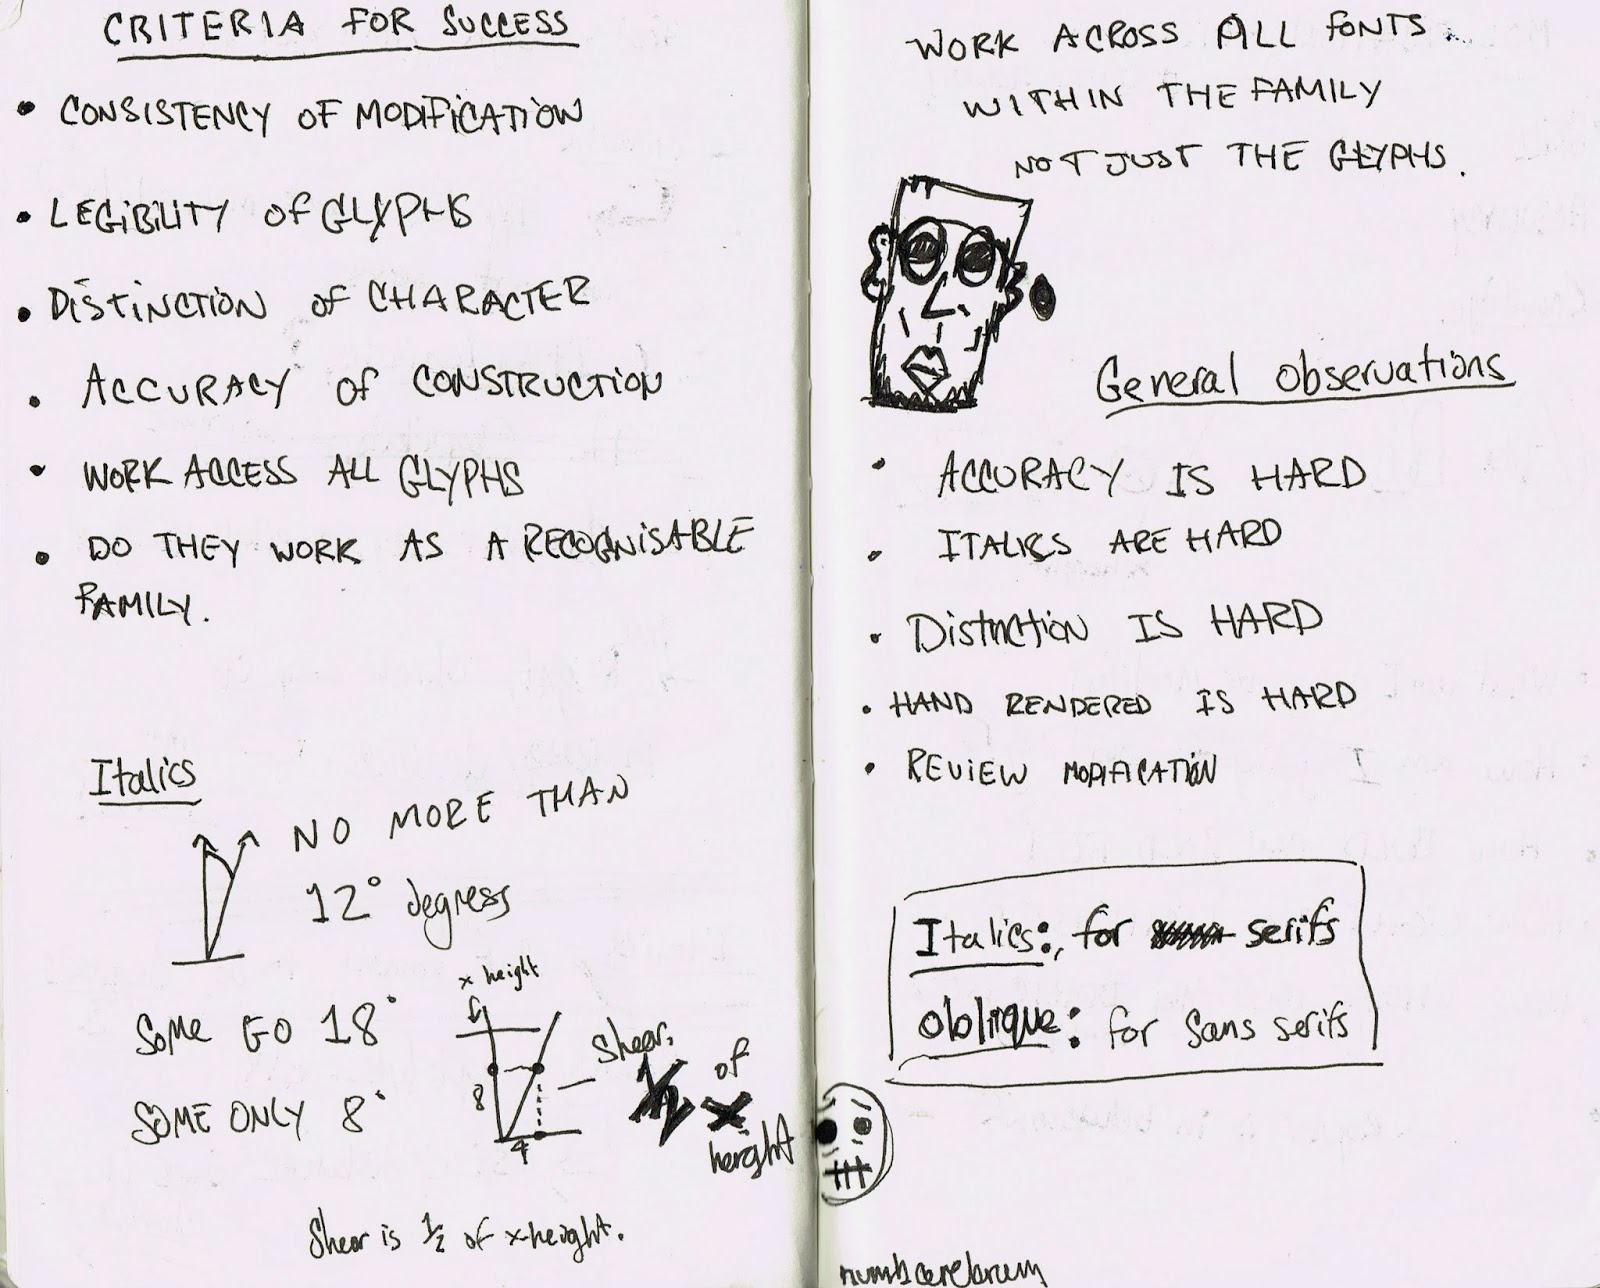 CRITERIA FOR SUCCESS
• CONSISTENCY OF MODIFICATION
• LEGIBILITY OF GLYPHS
• DISTINCTION OF CHARACTER
• ACCURACY OF CONSTRUCTION
• WORK ACCESS ALL GLYPHS
• DO THEY WORK AS A RECOGNISABLE
FAMILY.
Italics
NO MORE THAN
12° degress
SOME GO 18°
SOME ONLY 8°
x height
8
4
Shear.
1/2 of
x
height
Shear is 1/2 of x-height.
WORK ACROSS ALL FONTS
WITHIN THE FAMILY
NOT JUST THE GLYPHS.
General Observations
• ACCURACY IS HARD
• ITALICS ARE HARD
• Distinction IS HARD
• HAND RENDERED IS HARD
• REVIEW MODIFICATION
Italics: for serifs
oblique: for Sans serifs
numbcerebrum